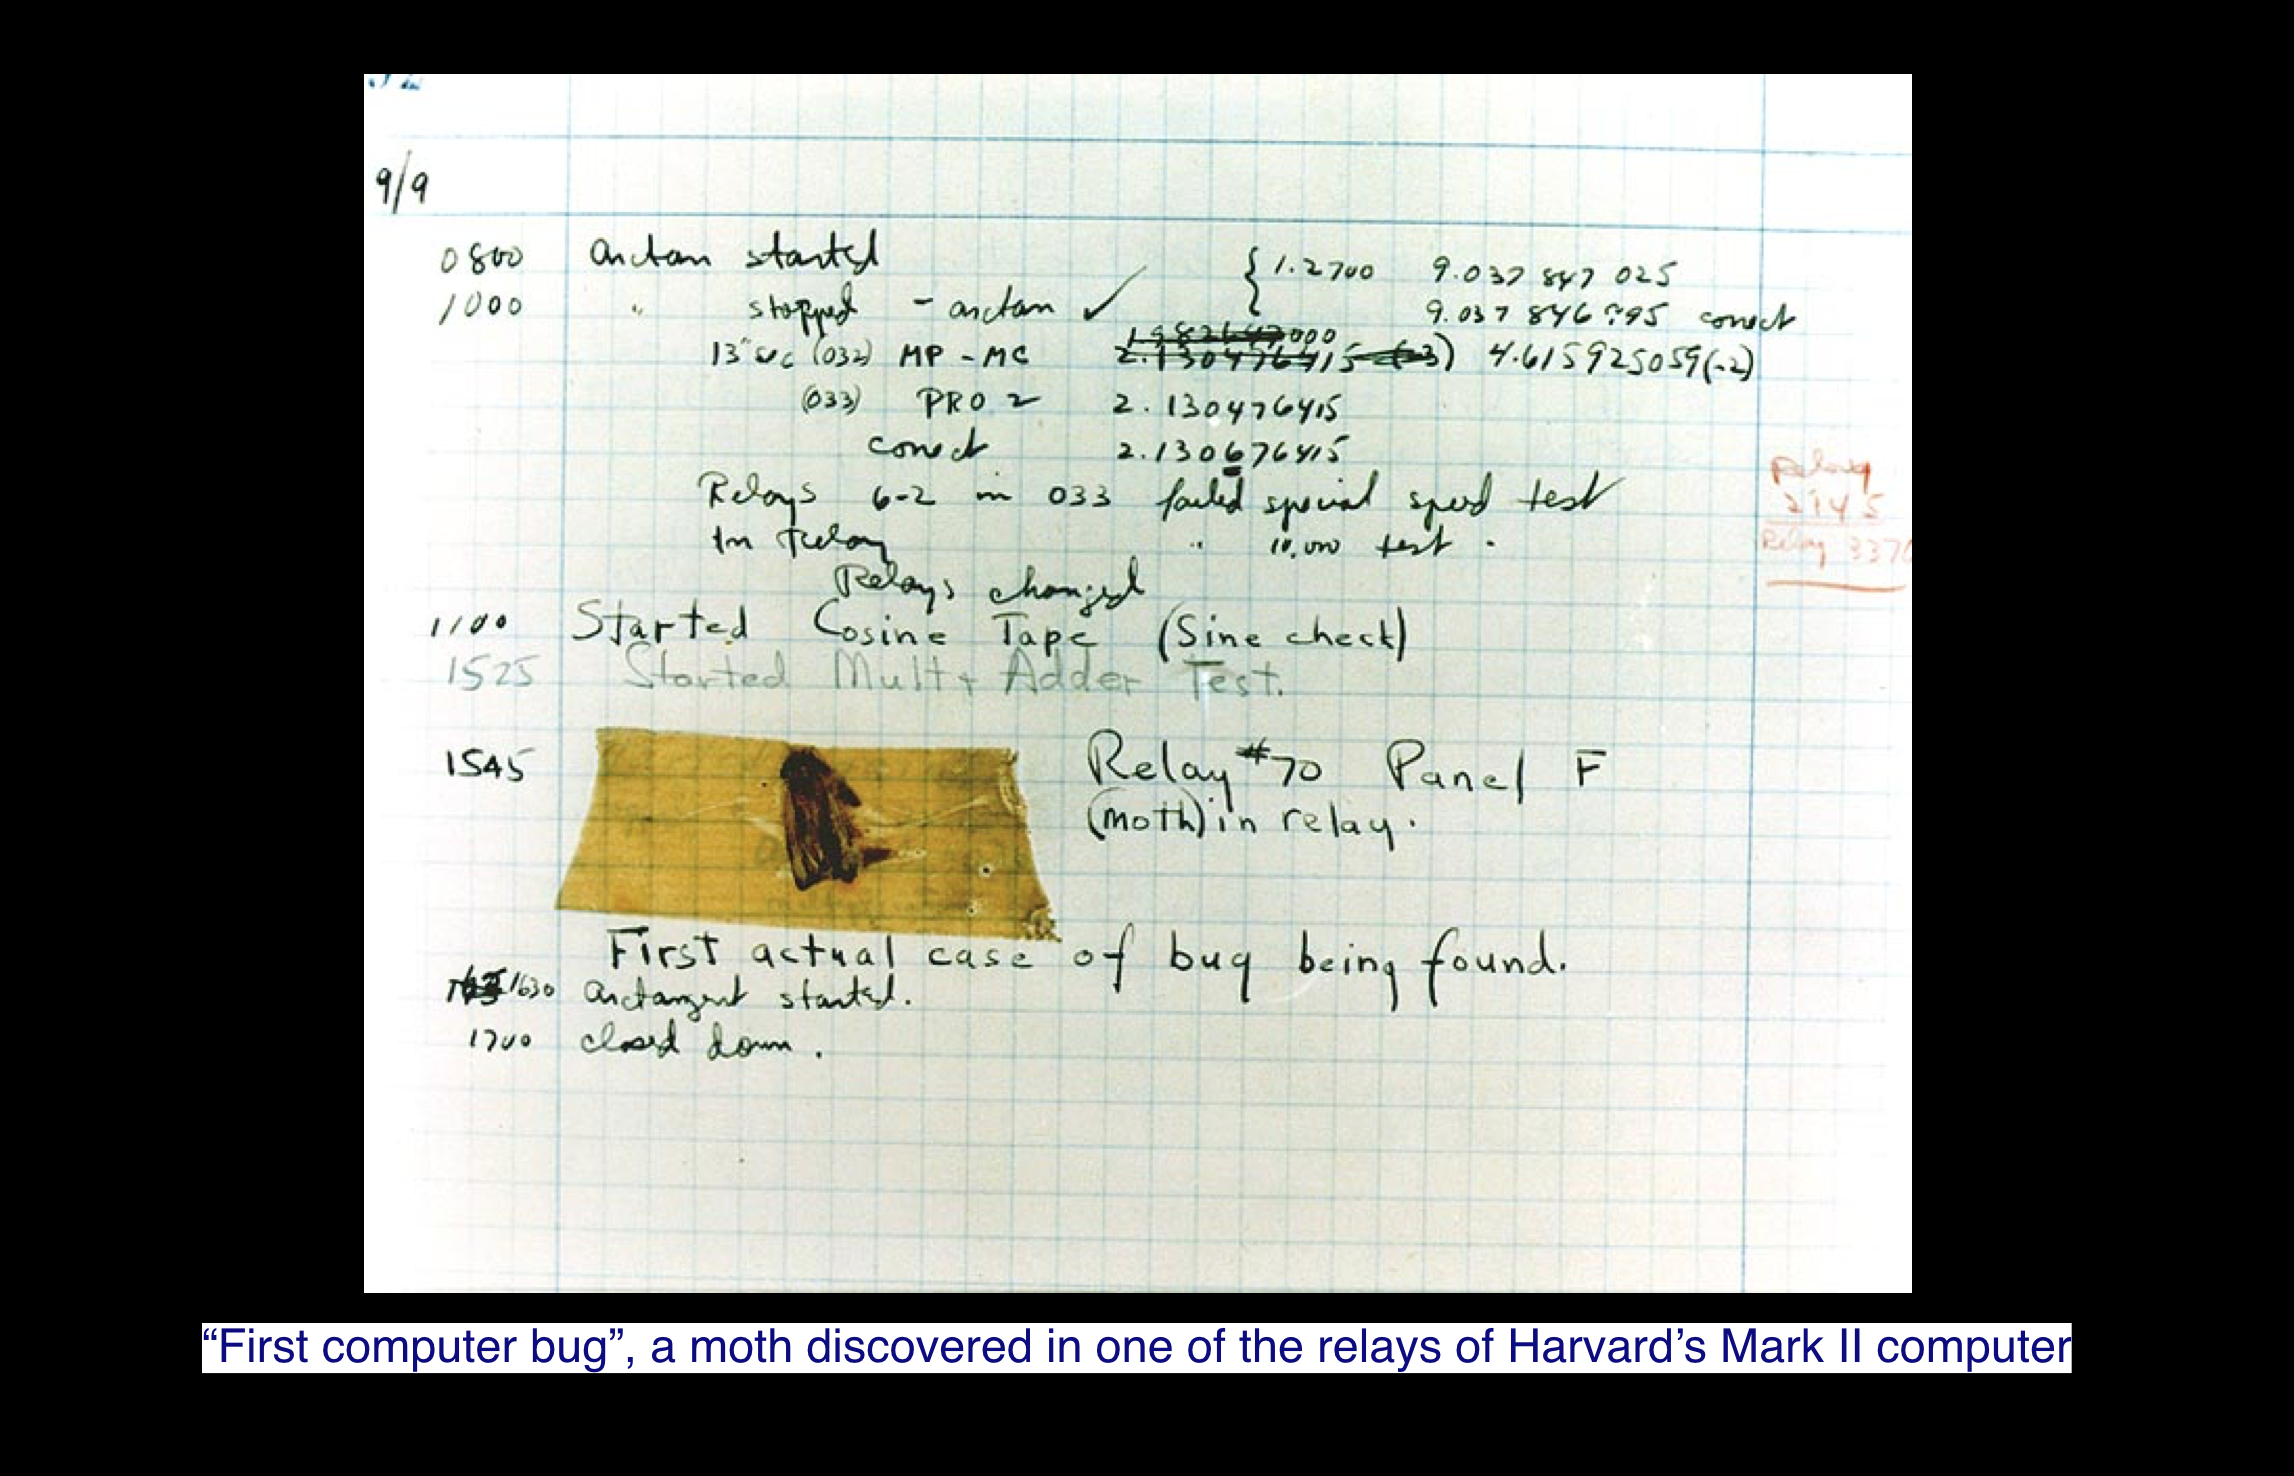 9/9
0800 arctan started { 1.2700 9.037 847 025
1000 " stopped - arctan ✓ 9.037 846 795 correct
13" sec (032) MP - MC 4.615925059(-2)
(033) PRO 2 2.130476415
correct 2.130676415
Relays 6-2 in 033 failed special speed test
In relay " 10,000 test .
Relays changed
Relay
2145
Relay 3370
1100 Started Cosine Tape (Sine check)
1525 Started Mult+ Adder Test.
1545 Relay #70 Panel F
(moth) in relay.
First actual case of bug being found.
1630 arctangent started.
1700 closed down .
“First computer bug”, a moth discovered in one of the relays of Harvard’s Mark II computer